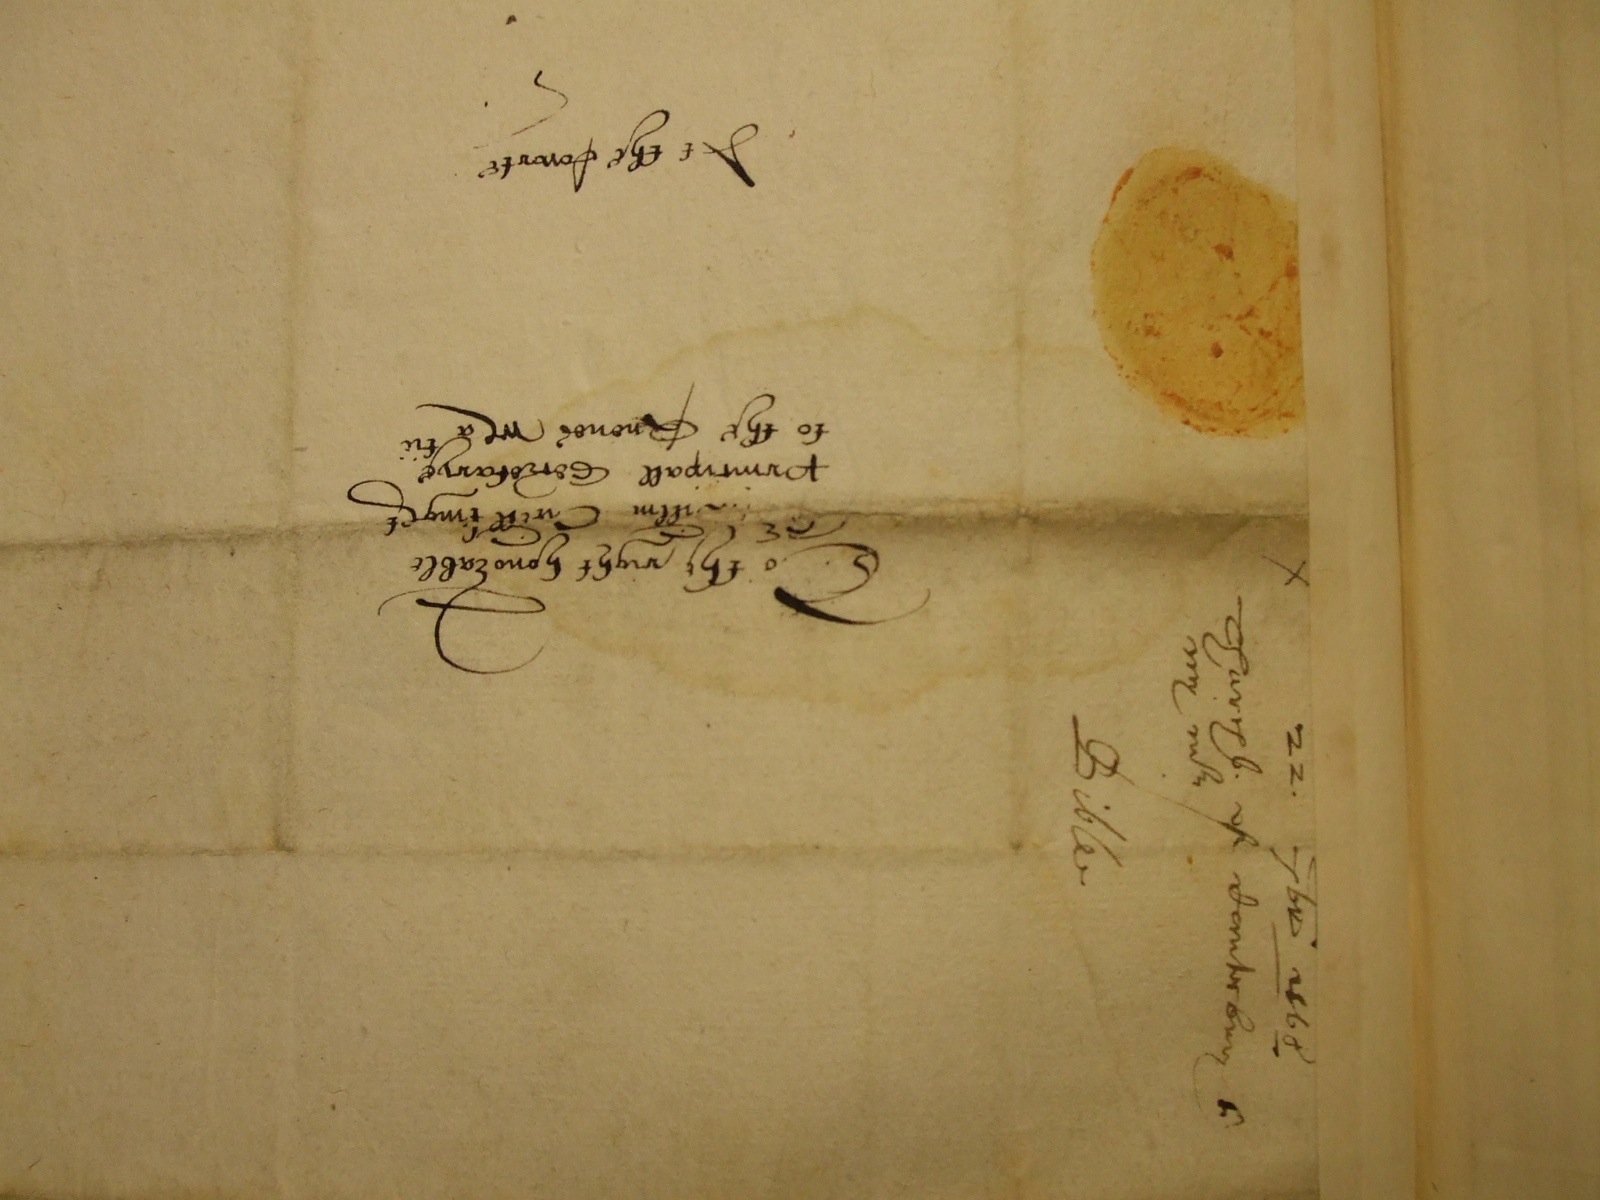 To the right honorable
Sr Willm Cecill knyght
principall Secretarye
to the Quenes Matie
At the Courte
22. 7bre 1568
Archb. of Canterbury to
my mr
Bible